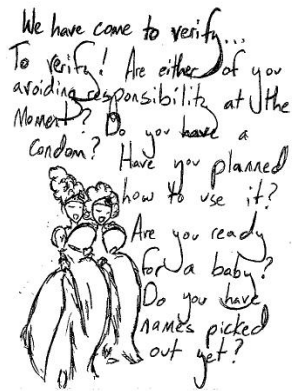 We have come to verify...
To verify! Are either of you
avoiding responsibility at the
Moment? Do you have a
condom? Have you planned
how to use it?
Are you ready
for a baby?
Do you have
names picked
out yet?